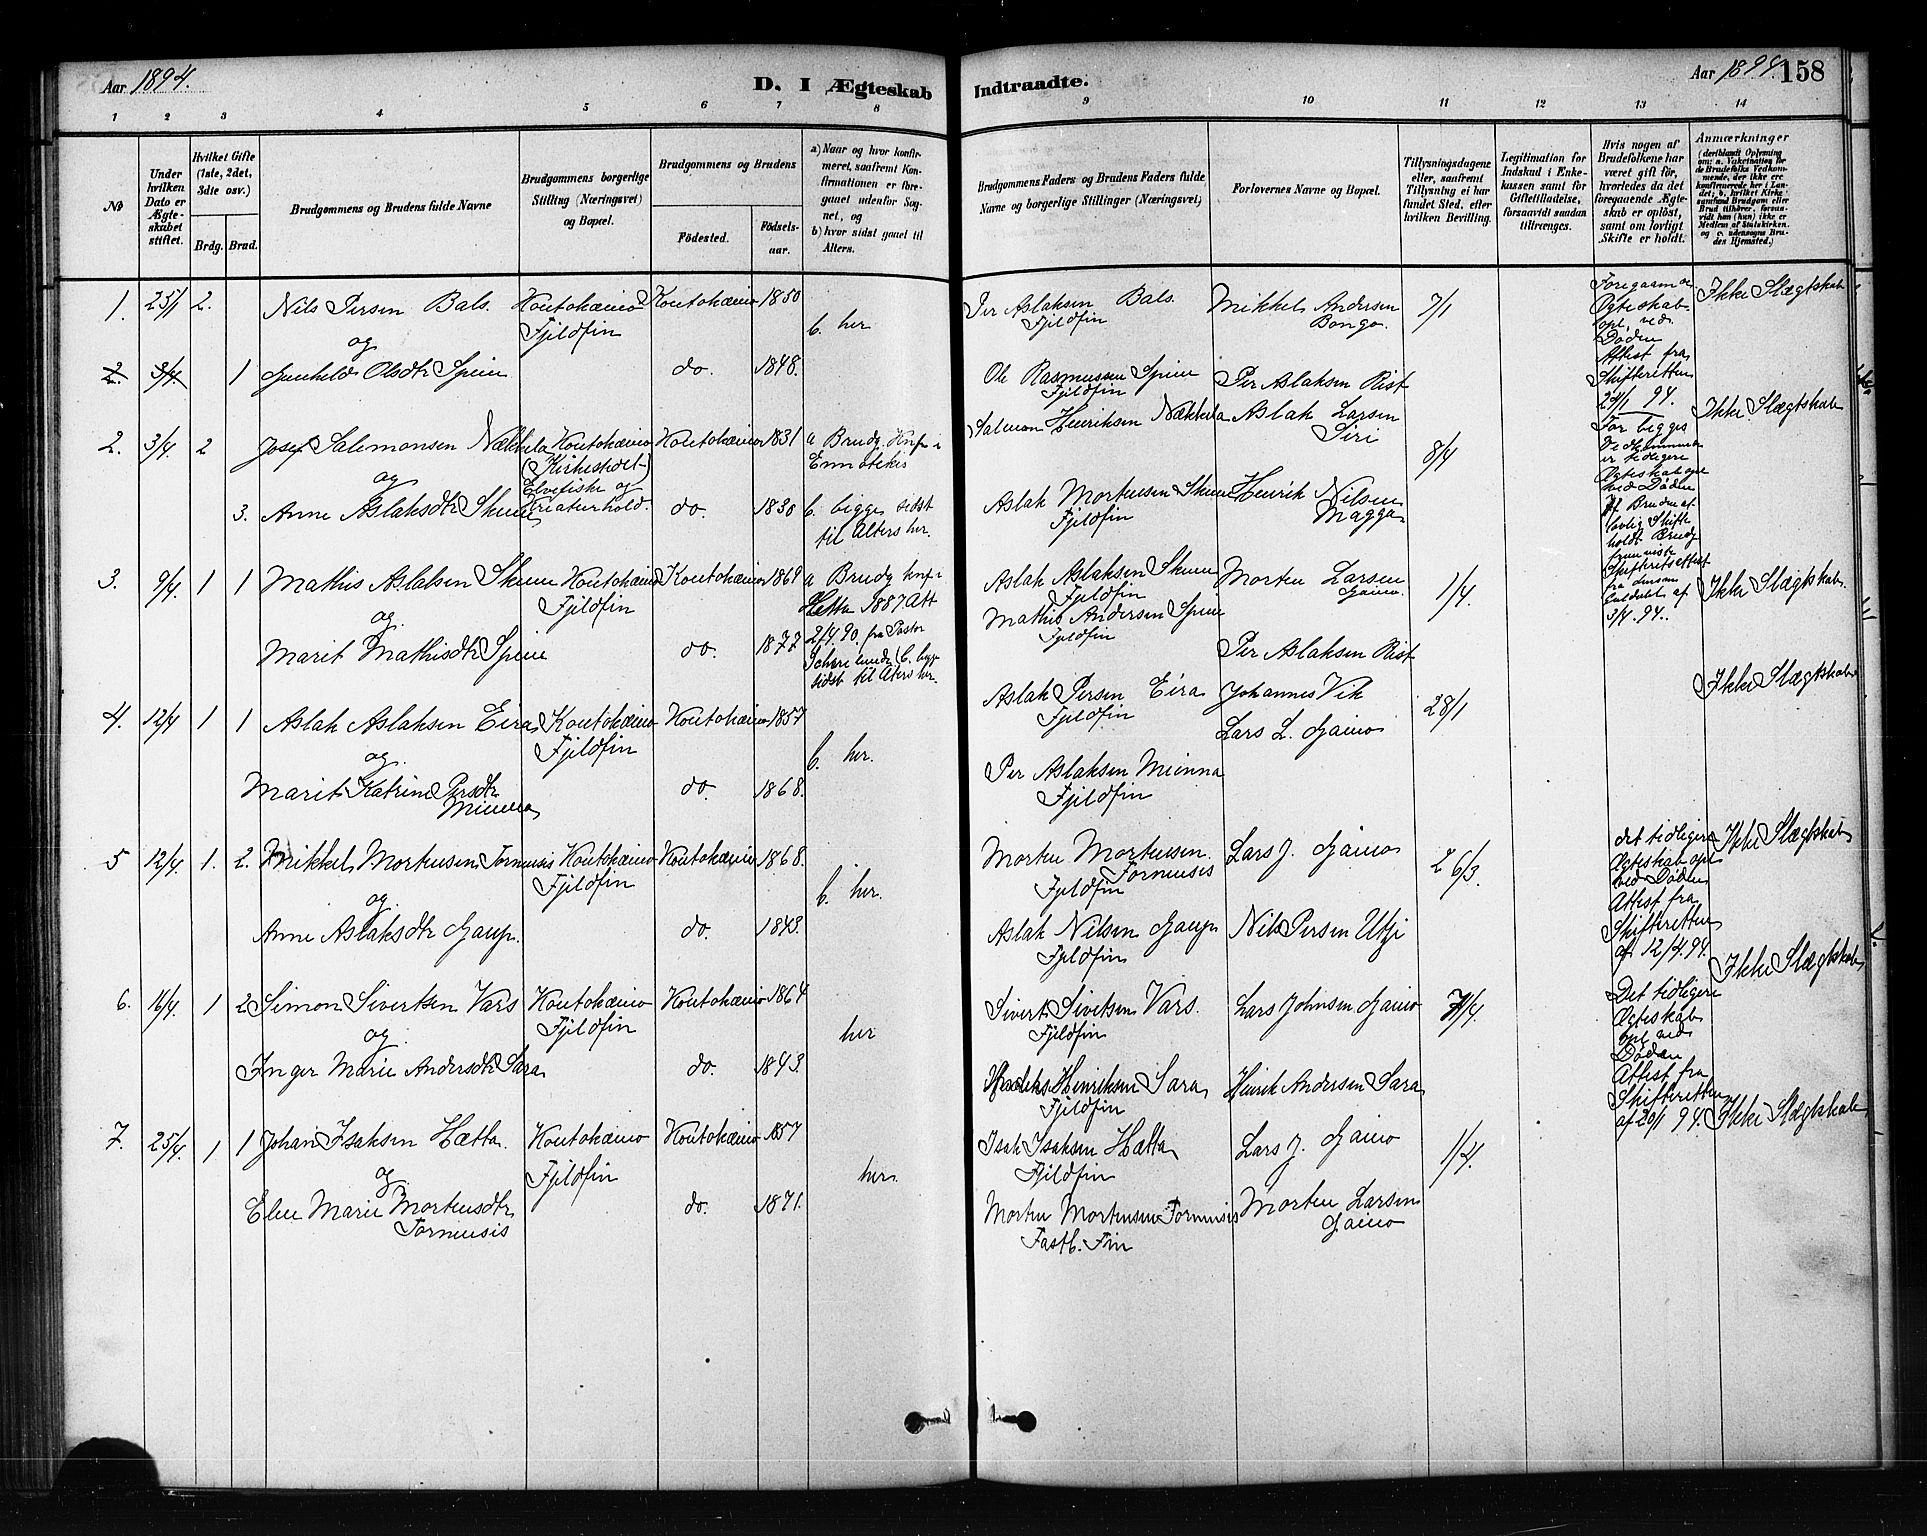 Aar 1894.
D. I Ægteskab
Indtraadte.
Aar 1894. 158
1 2 3 4 5 6 7 8
9 10 11 12 13 14
No
Under hvilken Dato er Ægteskabet stiftet.
Hvilket Gifte (1ste, 2det, 3die osv.)
Brdg. Brud.
Brudgommens og Brudens fulde Navne
Brudgommens borgerlige Stilling (Næringsvei) og Bopæl.
Brudgommens og Brudens
Fødested.
Fødselsaar.
a) Naar og hvor konfirmeret, saafremt Konfirmationen er foregaaet udenfor Sognet, og
b) hvor sidst gaaet til Alters.
Brudgommens Faders og Brudens Faders fulde Navne og borgerlige Stillinger (Næringsvei)
Forlovernes Navne og Bopæl.
Tillysningsdagene eller, saafremt Tillysning ei har fundet Sted, efter hvilken Bevilling.
Legitimation for Indskud i Enkekassen samt for Giftetilladelse, forsaavidt saadan tiltrænges.
Hvis nogen af Brudefolkene har været gift før, hvorledes da det foregaaende Ægteskab er opløst, samt om lovligt Skifte er holdt.
Anmærkninger
(deriblandt Oplysning om: a. Vakcination for de Brudefolks Vedkommende, der ikke ere konfirmerede her i Landet; b. hvilket Kirkesamfund Brudgom eller Brud tilhører, forsaavidt han (hun) ikke er Medlem af Statskirken, og c. udensogns Brudes Hjemsted.)
1. 25/1 2. Nils Persen Bals. Koutokæino Koutokæino 1850
Fjeldfin b. her
og
2. 3/4. 1 Gunhild Olsdtr Spein do. 1848.
Per Aslaksen Bals Mikkel Andersen 7/1
Fjeldfin Bongo.
Ole Rasmussen Spein Per Aslaksen Rist
Fjeldfin
Foregaaende
Ægteskab
opl. ved
Døden
Attest fra
Skifteretten
Ikke Slægtskab
2. 3/4 2 Josef Salomonsen Nækkela Koutokæino Koutokæino 1831 a Brudg. Knf. i
og (Kirkestedet) Enontekis
Elvefiske og
3. Anne Aslaksdtr Skum Kreaturhold. do. 1830 b. begge sidst
til Alters her.
Salmon Henriksen Nækkela Aslak Larsen
Siri 8/4
Aslak Mortensen Skum Henrik Nilsen
Fjeldfin Magga
For begges
Vedkommende
er tidligere
Ægteskab opl
ved Døden
Ikke Slægtskab
3. 9/4. 1 1 Mathis Aslaksen Skum Koutokæino Koutokæino 1869 a Brudg knf. i
Fjeldfin Hetta 1887 Att
og. 2/4 90. fra Pastor
Marit Mathisdtr Spein do. 1877
sidst til Alters her.
Aslak Aslaksen Skum Morten Larsen 1/4.
Fjeldfin Gaino.
Mathis Andersen Spein
Fjeldfin
Per Aslaksen Rist
3/4 94.
Ikke Slægtskab
4. 12/4 1 1 Aslak Aslaksen Eira Koutokæino Koutokæino 1857
og. Fjeldfin b. her.
Marit Katrine Persdtr do. 1868.
Mienna
Aslak Persen Eira Johannes Vik 28/1
Fjeldfin Lars L. Gaino
Per Aslaksen Mienna
Fjeldfin
Ikke Slægtskab
5 12/4 1. 2. Mikkel Mortensen Tornensis Koutokæino Koutokæino 1868.
og. Fjeldfin b. her.
Anne Aslaksdtr Gaup. do. 1843.
Morten Mortensen Lars J. Gaino 26/3.
Fjeldfin Tornensis
Aslak Nilsen Gaup Nils Persen Utsi
Fjeldfin
det tidligere
Ægteskab opl
ved Døden
Attest fra
Skifteretten
af 12/4.94.
Ikke Slægtskab
6. 16/4. 1 2 Simon Sivertsen Vars Koutokæino Koutokæino 1864
og. Fjeldfin her
Inger Marie Andersdtr Sara do. 1843.
Sivert Sivertsen Vars. Lars Johnsen Gaino 7/4.
Fjeldfin
Henriksen Sara Henrik Andersen Sara
Fjeldfin
Det tidligere
Ægteskab
opl ved
Døden
Attest fra
Skifteretten
af 20/1 94.
Ikke Slægtskab
7. 25/4. 1 1 Johan Isaksen Hætta. Koutokæino Koutokæino 1857
og Fjeldfin her.
Elen Marie Mortensdtr do. 1871.
Tornensis
Isak Isaksen Hætta Lars J. Gaino 1/4.
Fjeldfin
Morten Mortensen Tornensis Morten Larsen
Fastb. Fin Gaino
Ikke Slægtskab